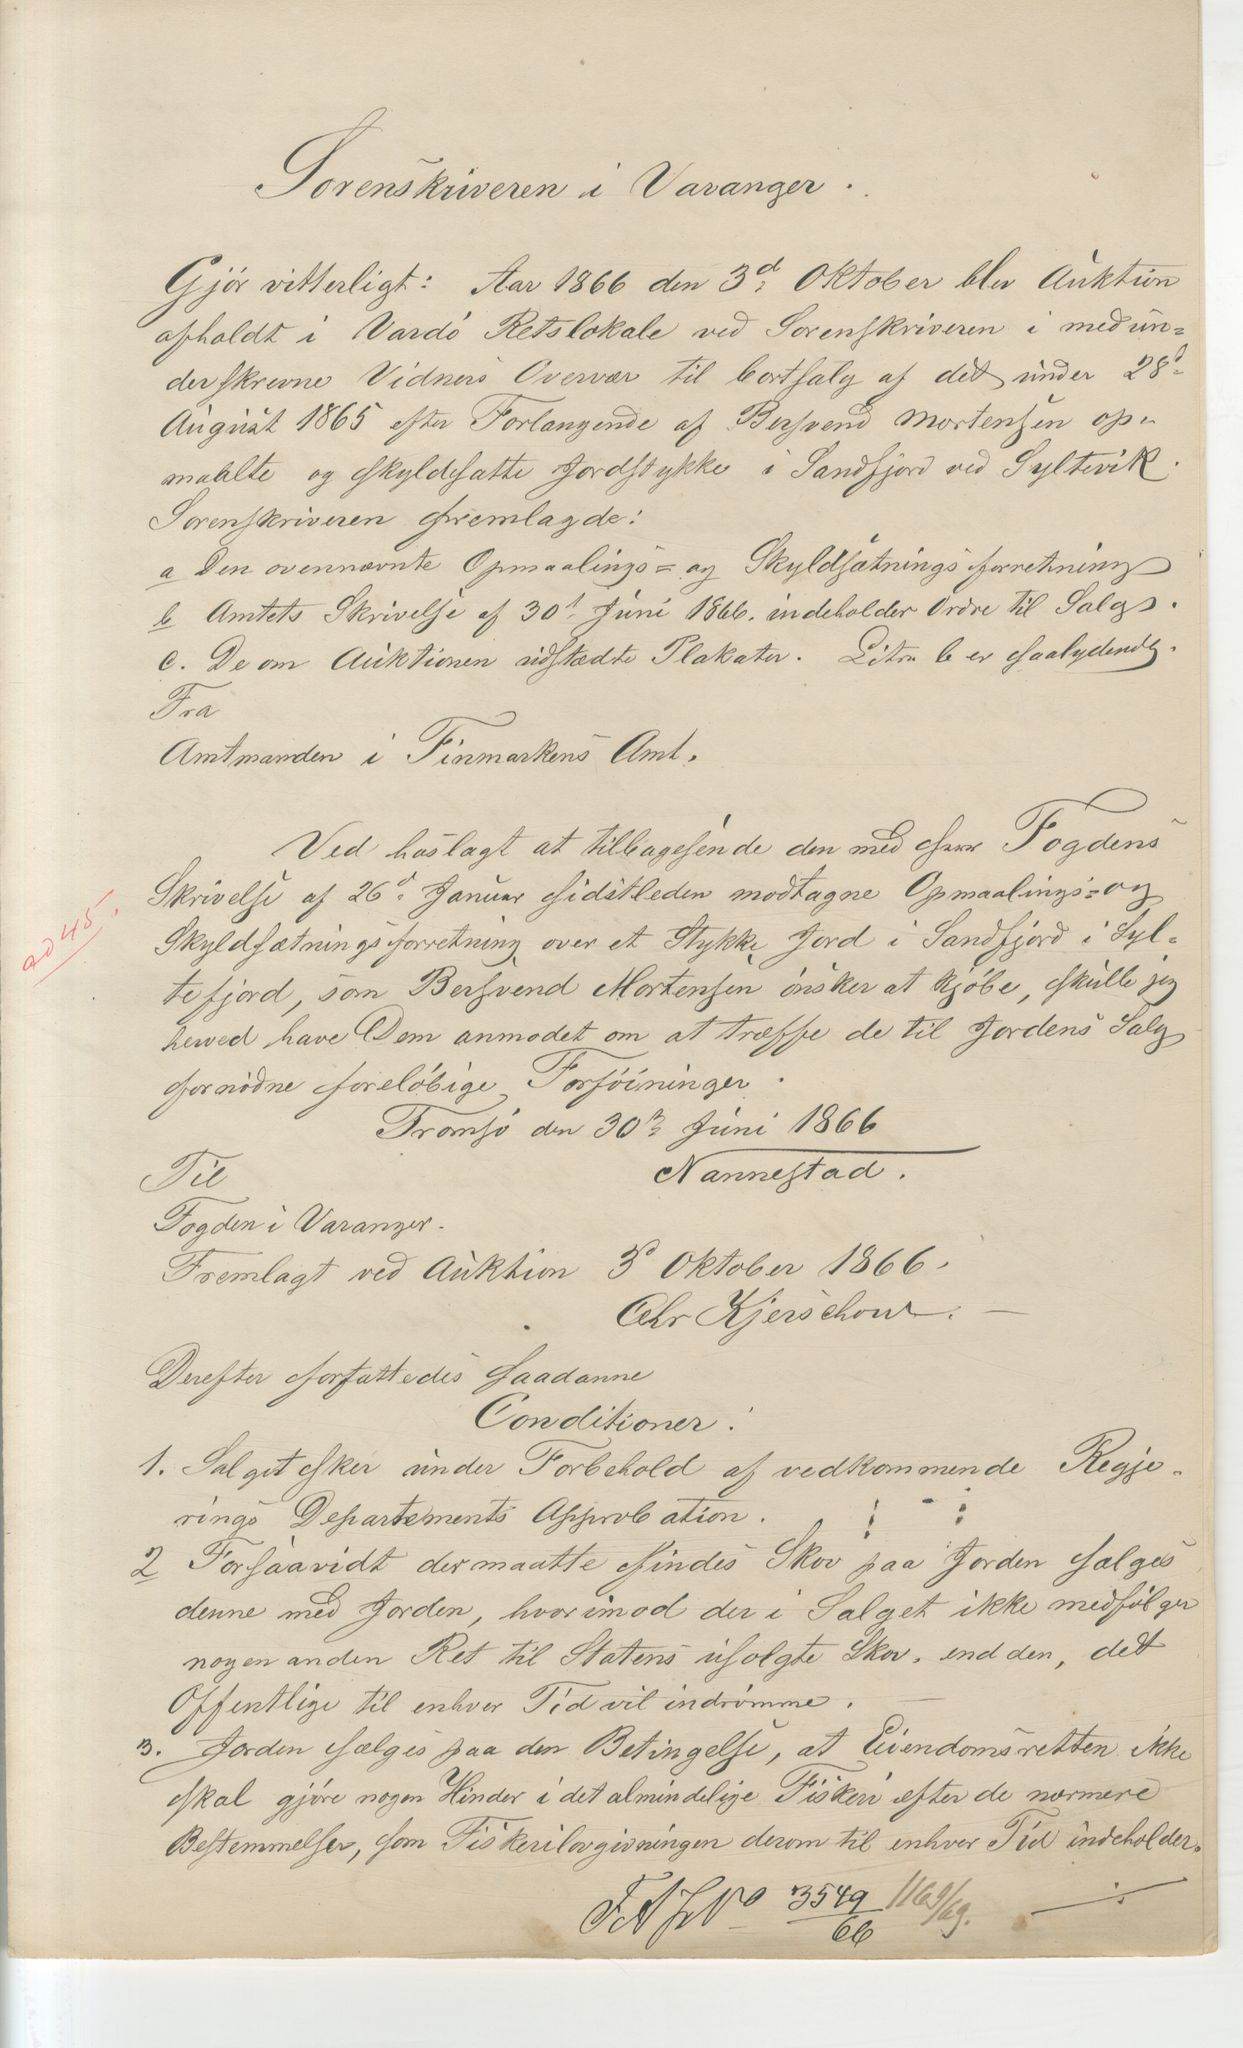 Sorenskriveren i Varanger.
Gjör vitterligt: Aar 1866 den 3d Oktober blev Auktion
afholdt i Vardö Retslokale ved Sorenskriveren i medun=
derskrevne Vidners Overvær til Bortsalg af det under 28d
August 1865 efter Forlangende af Bersvend Mortensen op-
maalte og skyldsatte Jordstykke i Sandfjord ved Syltevik.
Sorenskriveren fremlagde:
a Den ovennævnte Opmaalings= og Skyldsætningsforretning
b Amtets Skrivelse af 30t Juni 1866. indeholder Ordre til Salg.
c. De om Auktionen udstædte Plakater. Litra b er saalydende.
Fra
Amtmanden i Finmarkens Amt.
Ved hoslagt at tilbagesende den med Herr Fogdens
Skrivelse af 26d Januar sidstleden modtagne Opmaalings= og
Skyldsætningsforretning over et Stykke Jord i Sandfjord i Syl=
tefjord, som Bersvend Mortensen önsker at kjöbe, skulle jeg
herved have Dem anmodet om at træffe de til Jordens Salg
fornödne forelöbige Forföininger.
ad 45.
Tromsö den 30te Juni 1866
Nannestad.
Til
Fogden i Varanger.
Fremlagt ved Auktion 3d Oktober 1866.
Chr Kjerschow. —
Derefter forfattedes saadanne
Conditioner:
1. Salget sker under Forbehold af vedkommende Regje-
rings Departements Approbation.
2 Forsaavidt der maatte findes Skov paa Jorden sælges
denne med Jorden, hvorimod der i Salget ikke medfölger
nogen anden Ret til Statens usolgte Skov, end den, det
Offentlige til enhver Tid vil indrömme.
3. Jorden sælges paa den Betingelse, at Eiendomsretten ikke
skal gjöre nogen Hinder i det almindelige Fiskeri efter de nærmere
Bestemmelser, som Fiskerilovgivningen derom til enhver Tid indeholder.
No 3549/66 1169/69.